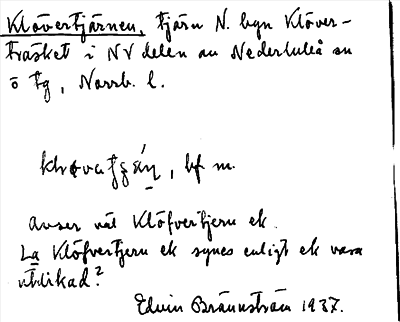 Klövertjärnen, tjärn N. byn Klöver-
träsket i NV delen av Nederluleå sn
ö tg, Norrb. l.
, bf m.
avser väl Klöfvertjern ek.
La Klöfvertjern ek synes enligt ek vara
utdikad?
Edvin Brännström 1937.